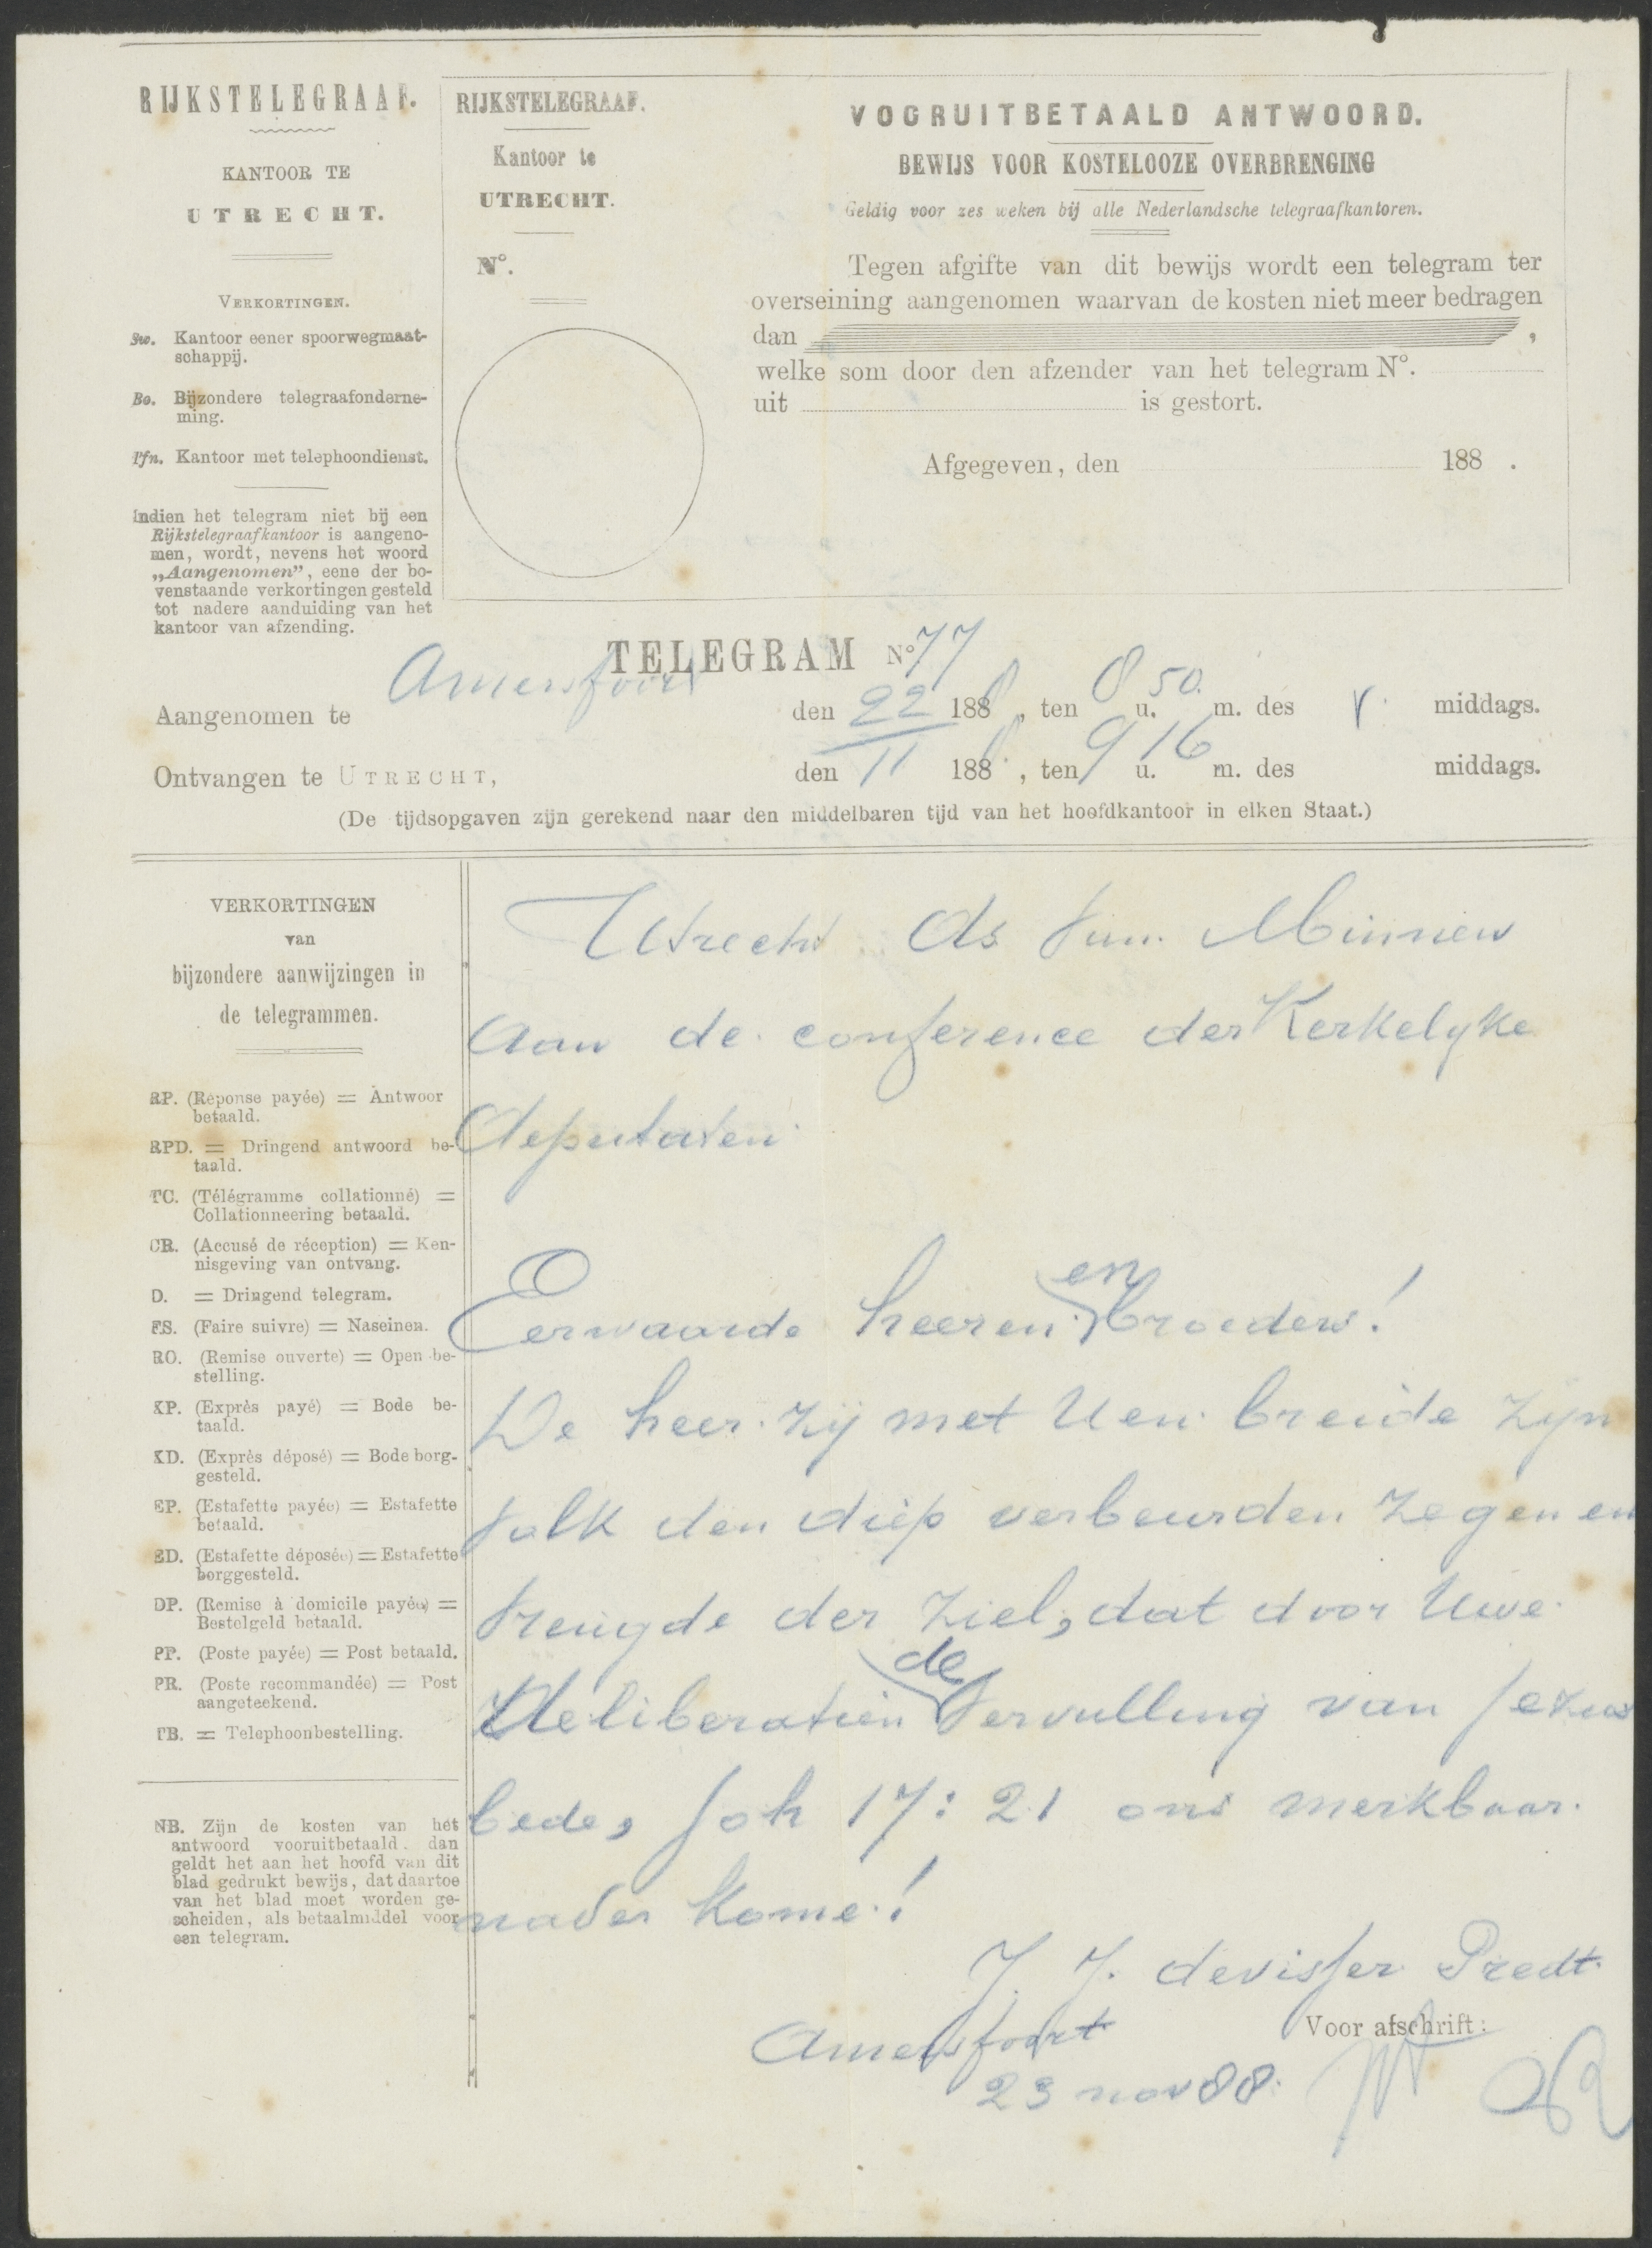 RIJKSTELEGRAAF.
KANTOOR TE
UTRECHT.
VERKORTINGEN.
Sw. Kantoor eener spoorwegmaat-
schappij.
Bo. Bijzondere telegraafonderne-
ming.
Tfn. Kantoor met telephoondienst.
Indien het telegram niet bij een
Rijkstelegraafkantoor is aangeno-
men, wordt, nevens het woord
„Aangenomen”, eene der bo-
venstaande verkortingen gesteld
tot nadere aanduiding van het
kantoor van afzending.
RIJKSTELEGRAAF.
Kantoor te
UTRECHT.
N°.
VOORUITBETAALD ANTWOORD.
BEWIJS VOOR KOSTELOOZE OVERBRENGING
Geldig voor zes weken bij alle Nederlandsche telegraafkantoren.
Tegen afgifte van dit bewijs wordt een telegram ter
overseining aangenomen waarvan de kosten niet meer bedragen
dan ,
welke som door den afzender van het telegram N°.
uit is gestort.
Afgegeven, den 188 .
TELEGRAM N° 77
Aangenomen te Amersfoort den 22 1888, ten 8 u. 50 m. des v. middags.
Ontvangen te UTRECHT, den 11 1888, ten 9 u. 16 m. des middags.
(De tijdsopgaven zijn gerekend naar den middelbaren tijd van het hoofdkantoor in elken Staat.)
VERKORTINGEN
van
bijzondere aanwijzingen in
de telegrammen.
RP. (Réponse payée) = Antwoor
betaald.
RPD. = Dringend antwoord be-
taald.
TC. (Télégramme collationné) =
Collationneering betaald.
CR. (Accusé de réception) = Ken-
nisgeving van ontvang.
D. = Dringend telegram.
FS. (Faire suivre) = Naseinen.
RO. (Remise ouverte) = Open be-
stelling.
XP. (Exprès payé) = Bode be-
taald.
XD. (Exprès déposé) = Bode borg-
gesteld.
EP. (Estafette payée) = Estafette
betaald.
ED. (Estafette déposée) = Estafette
borggesteld.
DP. (Remise à domicile payée) =
Bestelgeld betaald.
PP. (Poste payée) = Post betaald.
PR. (Poste recommandée) = Post
aangeteekend.
TB. = Telephoonbestelling.
NB. Zijn de kosten van het
antwoord vooruitbetaald, dan
geldt het aan het hoofd van dit
blad gedrukt bewijs, dat daartoe
van het blad moet worden ge-
scheiden, als betaalmiddel voor
een telegram.
Utrecht Ds Minnen
Aan de conference der Kerkelyke
deputaten
Eerwaarde heeren en broeders!
De heer zij met U en breide zijn
volk den diep verbeurden zegen en
vreugde der ziel, dat door Uwe
deliberatien de vervulling van Jezus
bede, Joh 17:21 ons merkbaar
nader kome!
J. J. de visser Predt.
Amersfoort
23 nov 88.
Voor afschrift: